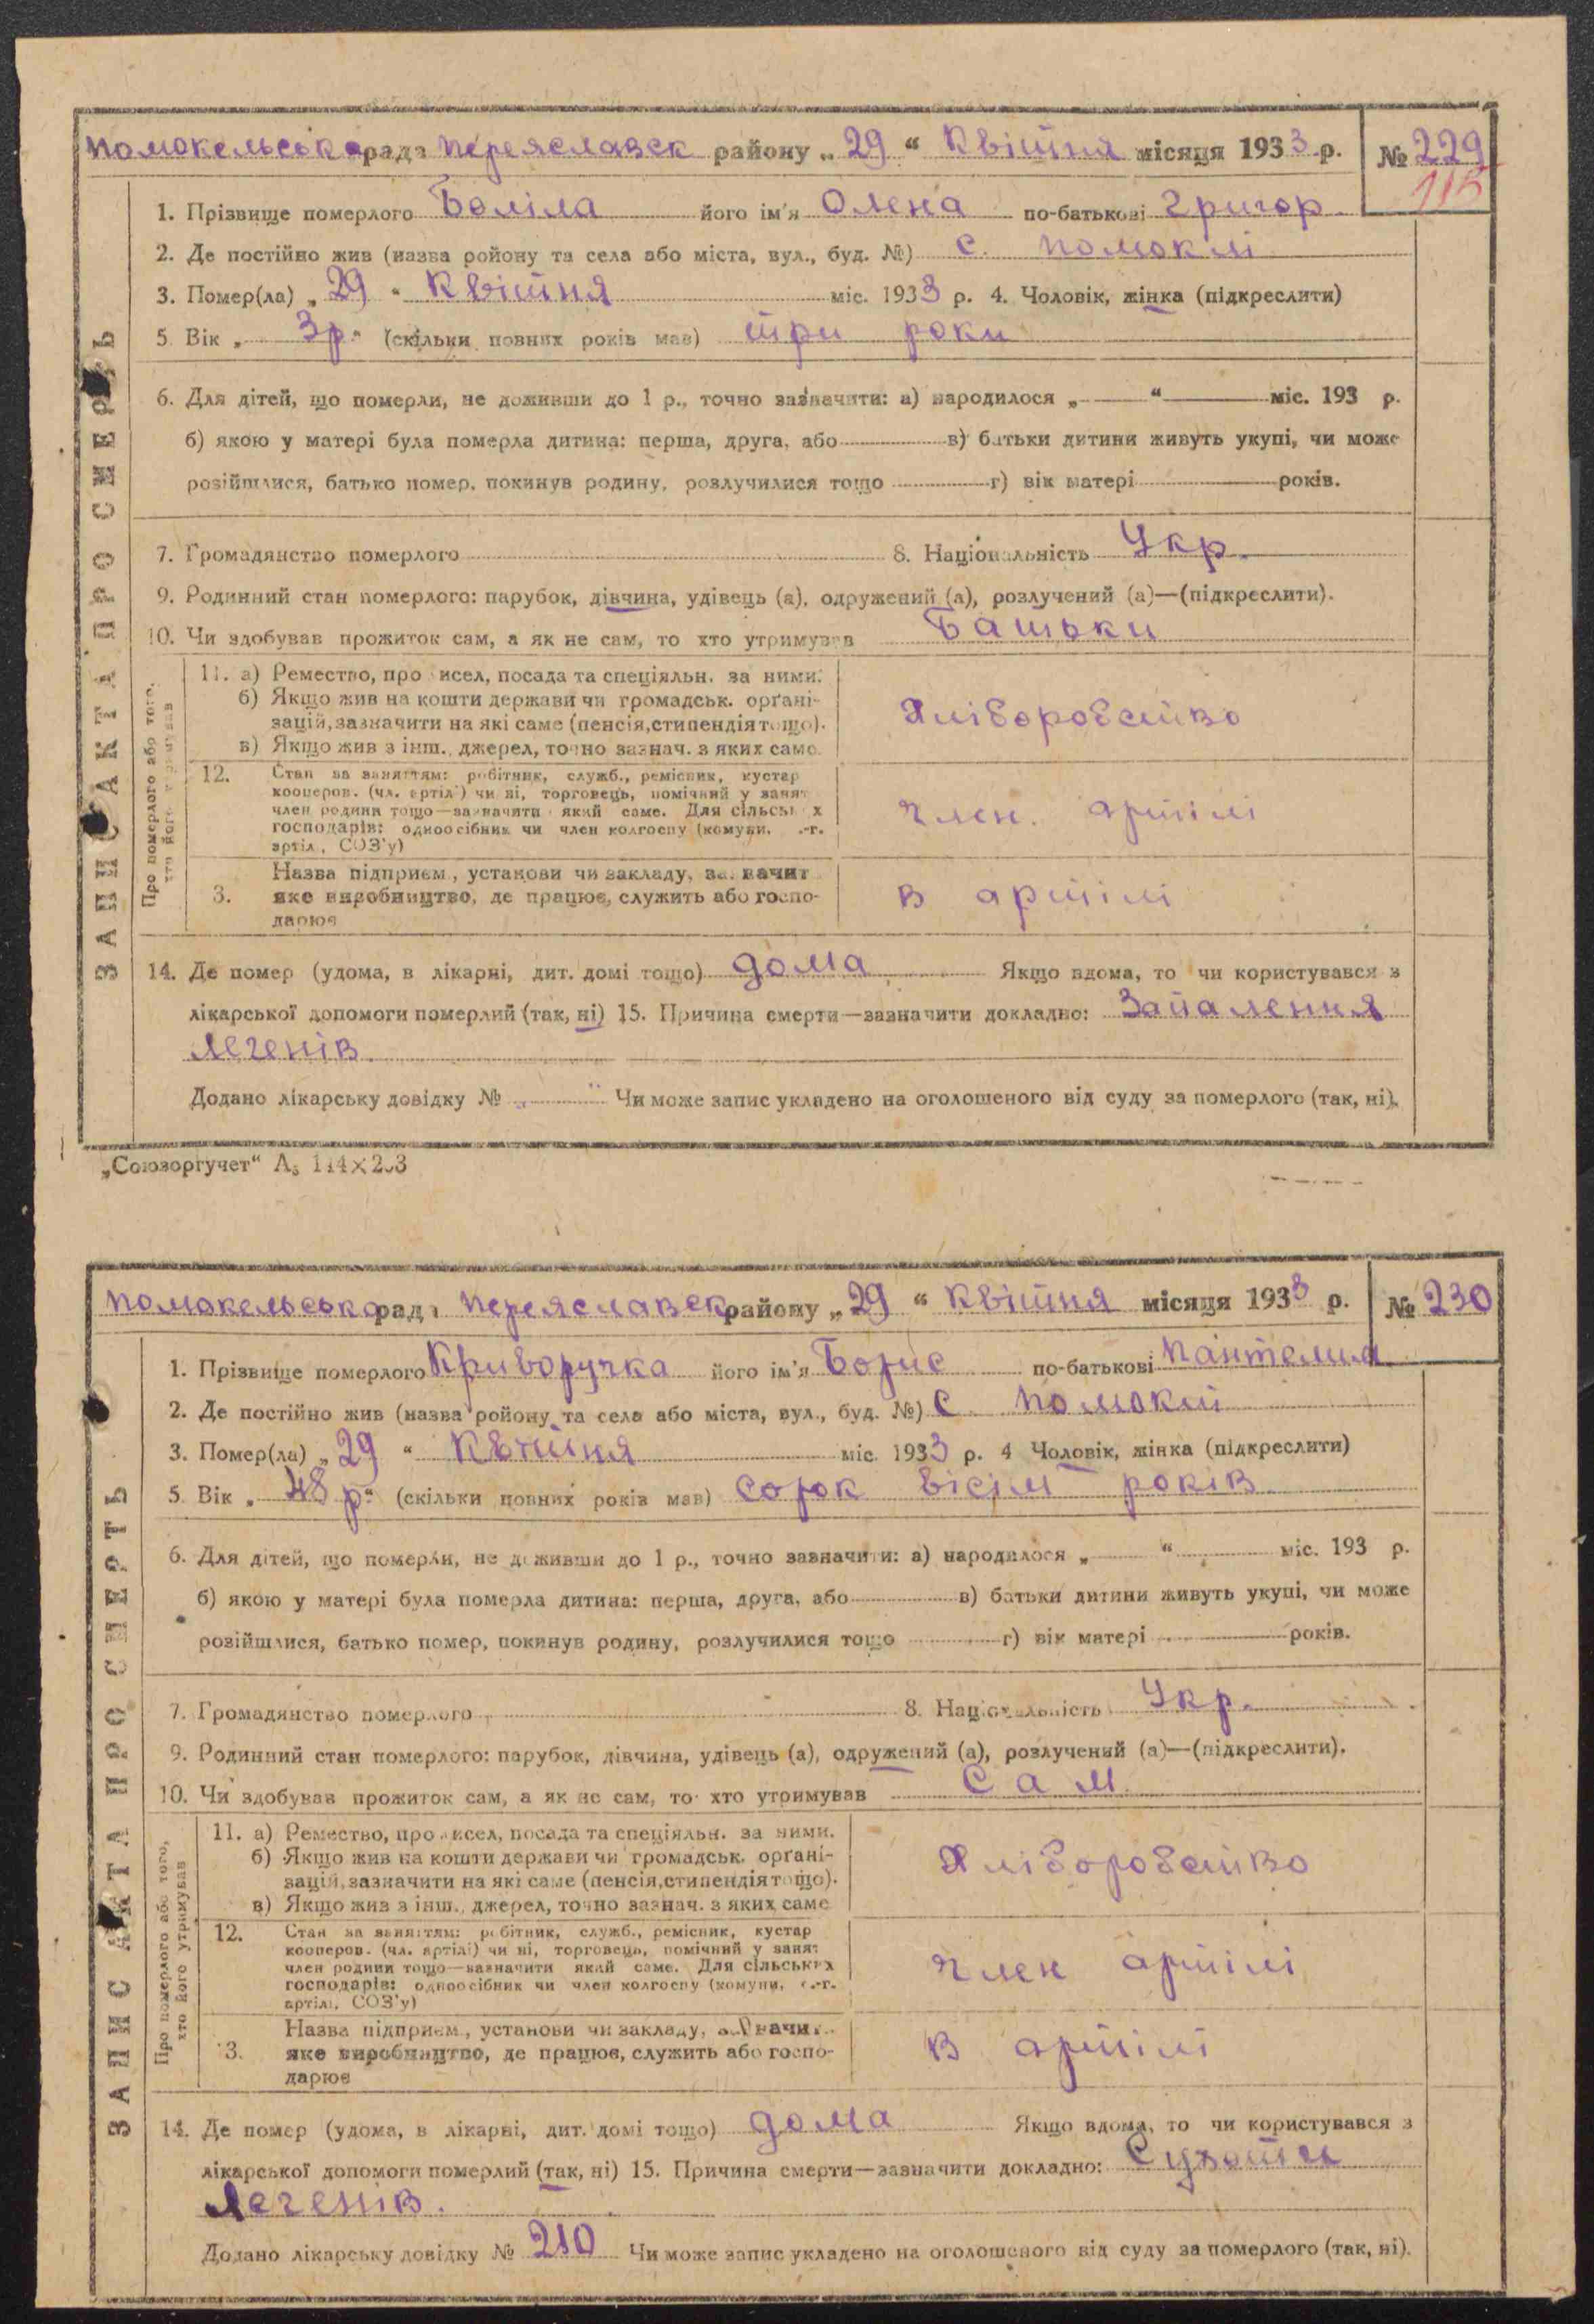 Помокельська рада Переяславск району „29“ Квітня місяця 1933 р. № 229
115
1. Прізвище померлого Боліла його ім'я Олена по-батькові Григор
2. Де постійно жив (назва ройону та села або міста, вул., буд. №) с. Помоклі
3. Помер(ла) „29“ Квітня міс. 1933 р. 4. Чоловік, жінка (підкреслити)
5. Вік „3р.“ (скільки повних років мав) три роки
6. Для дітей, що померли, не доживши до 1 р., точно зазначити: а) народилося „ “ міс. 193 р.
б) якою у матері була померла дитина: перша, друга, або в) батьки дитини живуть укупі, чи може
розійшлися, батько помер, покинув родину, розлучилися тощо г) вік матері років.
7. Громадянство померлого 8. Національність Укр.
9. Родинний стан померлого: парубок, дівчина, удівець (а), одружений (а), розлучений (а)—(підкреслити).
10. Чи здобував прожиток сам, а як не сам, то хто утримував Батьки
Про померлого або того, хто його утримував
11. а) Ремество, промисел, посада та спеціяльн. за ними.
б) Якщо жив на кошти держави чи громадськ. орґані-
зацій, зазначити на які саме (пенсія, стипендія тощо).
в) Якщо жив з інш. джерел, точно зазнач. з яких саме.
Хліборобство
12. Стан за заняттям: робітник, служб., ремісник, кустар
кооперов. (чл. артілі) чи ні, торговець, помічний у занят
член родини тощо—зазначити який саме. Для сільських
господарів: одноосібник чи член колгоспу (комуни, с.-г.
артіл., СОЗ'у)
член. артілі
3. Назва підприєм., установи чи закладу, зазначит
яке виробництво, де працює, служить або госпо-
дарює
в артілі
14. Де помер (удома, в лікарні, дит. домі тощо) дома Якщо вдома, то чи користувався з
лікарської допомоги померлий (так, ні) 15. Причина смерти—зазначити докладно: Запалення
легенів
Додано лікарську довідку № Чи може запис укладено на оголошеного від суду за померлого (так, ні).
ЗАПИС АКТА ПРО СМЕРТЬ
„Союзоргучет“ А₅ 144×203
Помокельська рада Переяславск району „29“ Квітня місяця 1933 р. № 230
1. Прізвище померлого Криворучка його ім'я Борис по-батькові Пантелим
2. Де постійно жив (назва ройону та села або міста, вул., буд. №) с Помоклі
3. Помер(ла) „29“ Квітня міс. 1933 р. 4 Чоловік, жінка (підкреслити)
5. Вік „48 р.“ (скільки повних років мав) сорок вісім років.
6. Для дітей, що померли, не доживши до 1 р., точно зазначити: а) народилося „ “ міс. 193 р.
б) якою у матері була померла дитина: перша, друга, або в) батьки дитини живуть укупі, чи може
розійшлися, батько помер, покинув родину, розлучилися тощо г) вік матері років.
7. Громадянство померлого 8. Національність Укр.
9. Родинний стан померлого: парубок, дівчина, удівець (а), одружений (а), розлучений (а)—(підкреслити).
10. Чи здобував прожиток сам, а як не сам, то хто утримував Сам.
Про померлого або того, хто його утримував
11. а) Ремество, промисел, посада та спеціяльн. за ними.
б) Якщо жив на кошти держави чи громадськ. орґані-
зацій, зазначити на які саме (пенсія, стипендія тощо).
в) Якщо жив з інш. джерел, точно зазнач. з яких саме
Хліборобство
12. Стан за заняттям: робітник, служб., ремісник, кустар
кооперов. (чл. артілі) чи ні, торговець, помічний у занят
член родини тощо—зазначити який саме. Для сільських
господарів: одноосібник чи член колгоспу (комуни, с.-г.
артіл., СОЗ'у)
член артілі
3. Назва підприєм., установи чи закладу, зазначит
яке виробництво, де працює, служить або госпо-
дарює
в артілі
14. Де помер (удома, в лікарні, дит. домі тощо) дома Якщо вдома, то чи користувався з
лікарської допомоги померлий (так, ні) 15. Причина смерти—зазначити докладно: Сухоти
легенів.
Додано лікарську довідку № 210 Чи може запис укладено на оголошеного від суду за померлого (так, ні).
ЗАПИС АКТА ПРО СМЕРТЬ